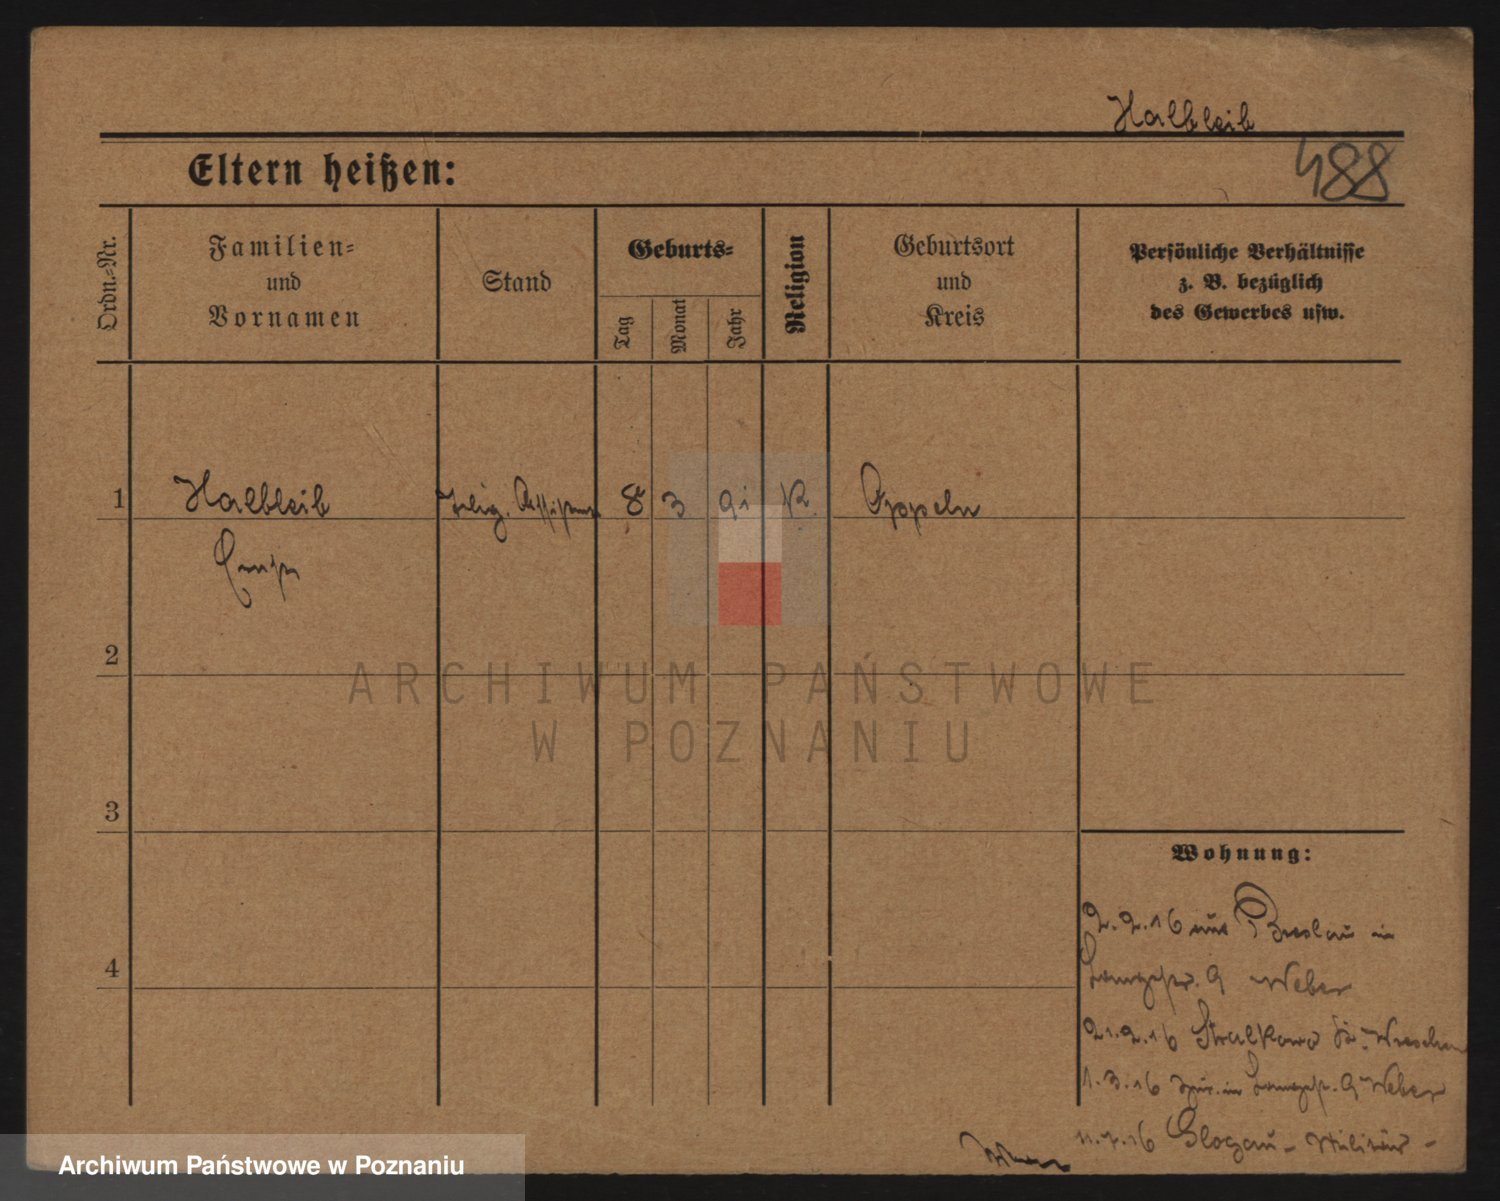 Halbleib
Eltern heißen:
488
Ordn.=Nr.
Familien=
und
Vornamen
Stand
Geburts=
Tag
Monat
Jahr
Religion
Geburtsort
und
Kreis
Persönliche Verhältnisse
z. B. bezüglich
des Gewerbes usw.
1
Halbleib
8 3 91 K.
Oppeln
2
ARCHIWUM PAŃSTWOWE
W POZNANIU
3
Wohnung:
4
2.2.16 aus Breslau in
9 Weber
21.2.16 Stralkowo Kr. Wreschen
1.3.16 zur. in 9 Weber
11.7.16 Glogau - Militär -
Archiwum Państwowe w Poznaniu